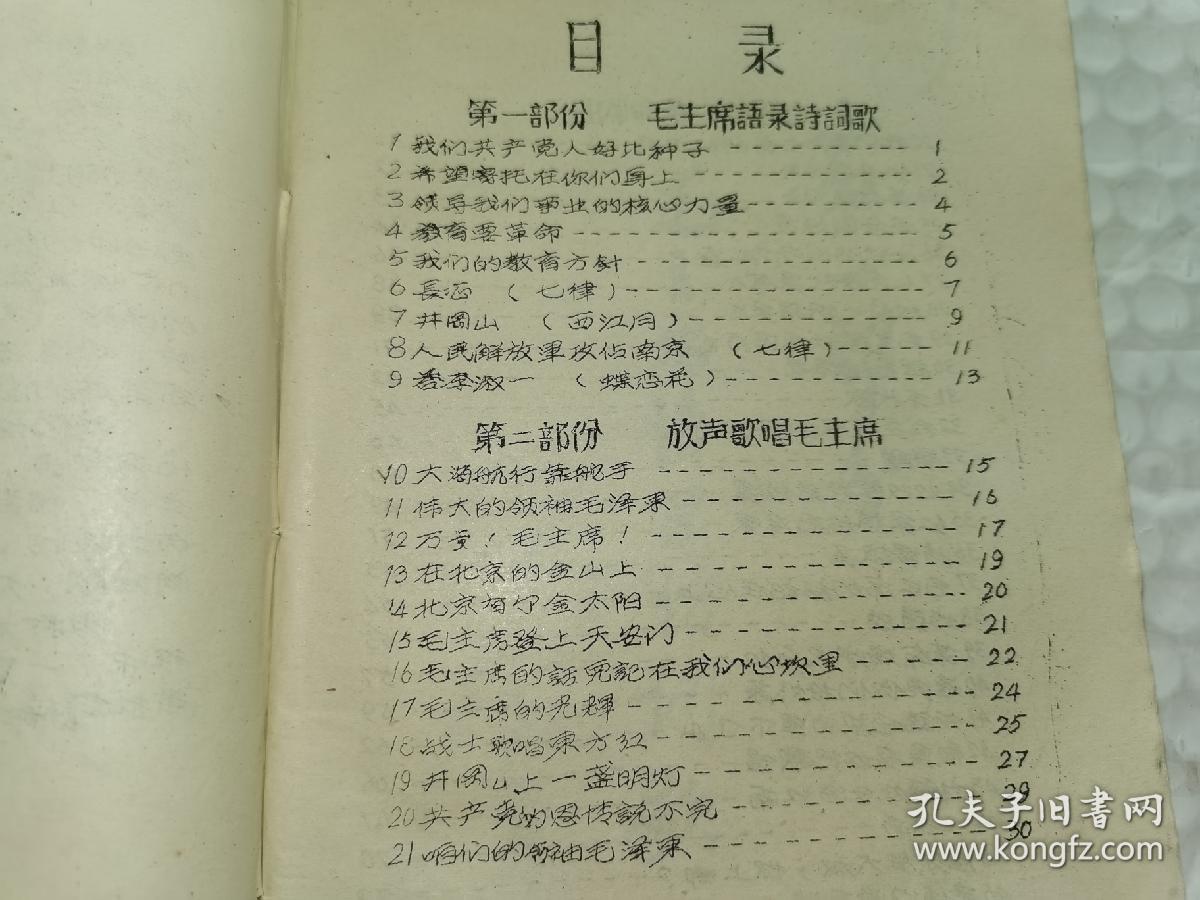 目 录
第一部份 毛主席語录詩詞歌
1 我们共产党人好比种子 ---------- 1
2 希望寄托在你们身上 ----------- 2
3 领导我们事业的核心力量 ---------- 4
4 教育要革命 --------------- 5
5 我们的教育方針 ------------- 6
6 長征 (七律) -------------- 7
7 井岡山 (西江月) ------------ 9
8 人民解放軍攻佔南京 (七律) ----- 11
9 答李淑一 (蝶恋花) ---------- 13
第二部份 放声歌唱毛主席
10 大海航行靠舵手 ------------- 15
11 伟大的领袖毛泽東 ------------ 16
12 万岁!毛主席! -------------- 17
13 在北京的金山上 ------------- 19
14 北京有个金太阳 ------------- 20
15 毛主席登上天安门 ----------- 21
16 毛主席的話兒記在我们心坎里 ------ 22
17 毛主席的光輝 -------------- 24
18 战士歌唱東方红 ------------- 25
19 井岡山上一盏明灯 ------------ 27
20 共产党的恩情說不完 ----------- 29
21 咱们的领袖毛泽東 ------------ 30
孔夫子旧書网
www.kongfz.com